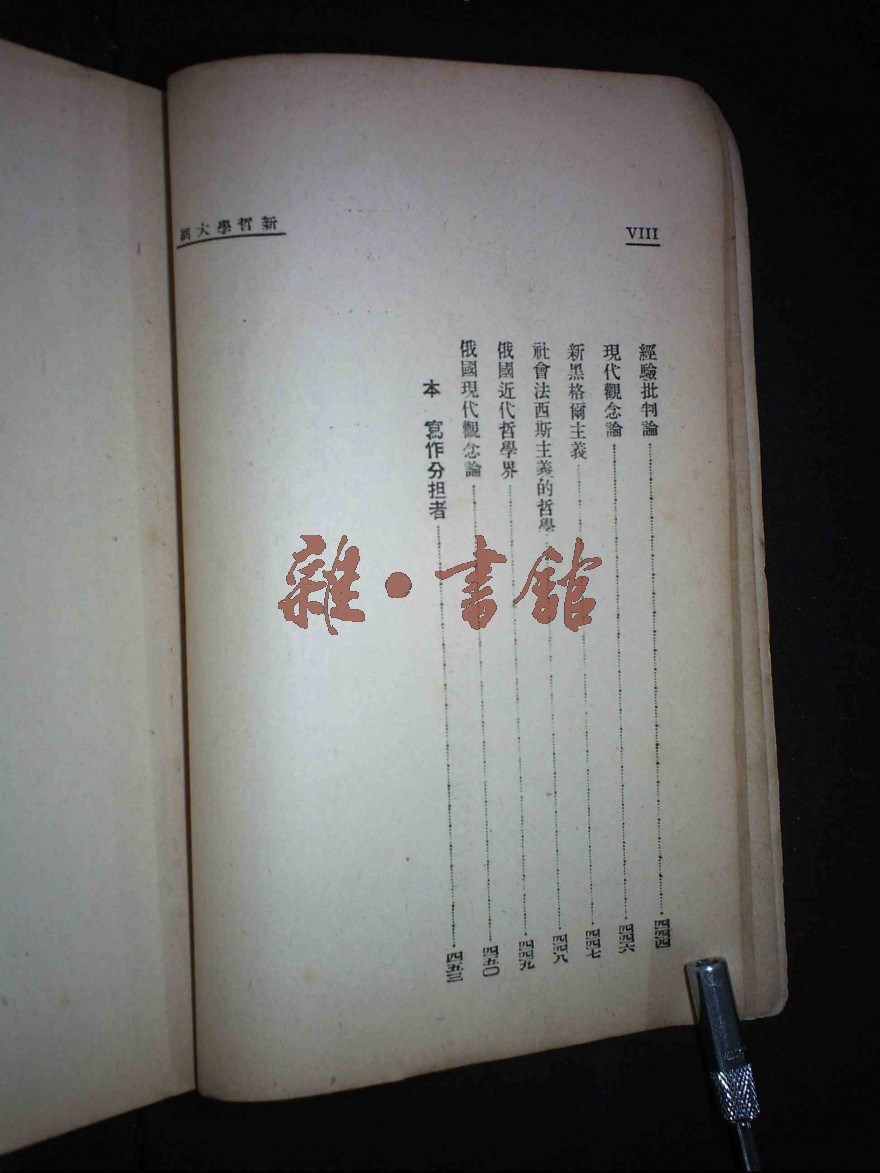 新哲學大綱
VIII
經驗批判論 四四四
現代觀念論 四四六
新黑格爾主義 四四七
社會法西斯主義的哲學 四四八
俄國近代哲學界 四四九
俄國現代觀念論 四五〇
本 寫作分担者 四五三
雜•書館